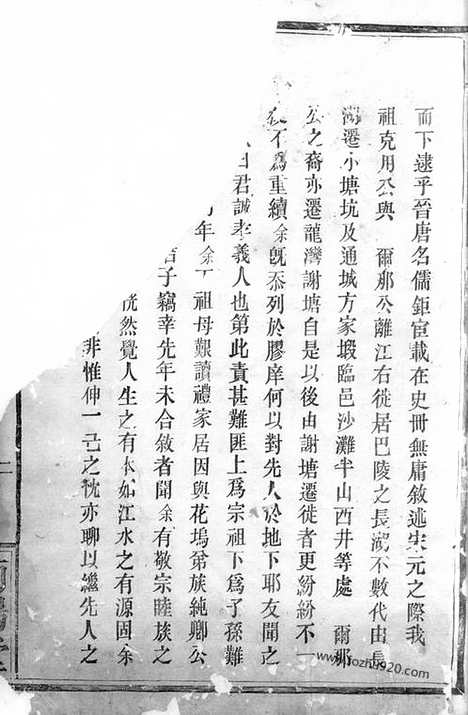 而下逮乎晉唐名儒鉅宦載在史冊無庸敘述宋元之際我
祖克用公與 爾那公離江右徙居巴陵之長湖不數代由長
湖遷小塘坑及通城方家塅臨邑沙灘半山西井等處 爾那
公之裔亦遷龍灣謝塘自是以後由謝塘遷徙者更紛紛不一
不為重續余旣忝列於膠庠何以對先人於地下耶友聞之
曰君誠孝義人也第此責甚難匪上為宗祖下為子孫難
年余丁祖母艱讀禮家居因與花塢第族純卿公
君子竊幸先年未合敘者聞余有敬宗睦族之
恍然覺人生之有本如江水之有源固余
非惟伸一己之忱亦聊以繼先人之
二
www.jiazhu920.com